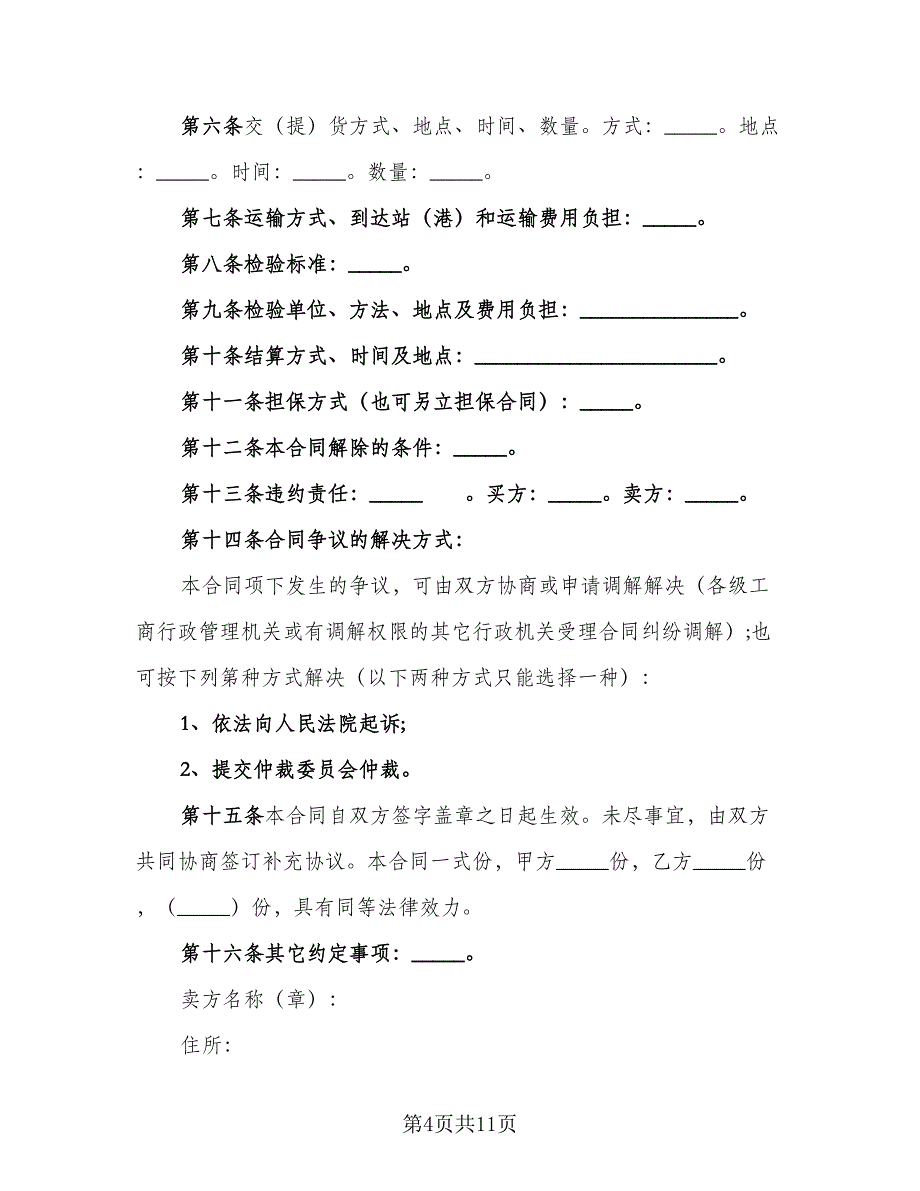 第六条交（提）货方式、地点、时间、数量。方式：_____。地点
：_____。时间：_____。数量：_____。
第七条运输方式、到达站（港）和运输费用负担：_____。
第八条检验标准：_____。
第九条检验单位、方法、地点及费用负担：_______________。
第十条结算方式、时间及地点：_______________________。
第十一条担保方式（也可另立担保合同）：_____。
第十二条本合同解除的条件：_____。
第十三条违约责任：_____　　。买方：_____。卖方：_____。
第十四条合同争议的解决方式：
本合同项下发生的争议，可由双方协商或申请调解解决（各级工
商行政管理机关或有调解权限的其它行政机关受理合同纠纷调解）;也
可按下列第种方式解决（以下两种方式只能选择一种）：
1、依法向人民法院起诉;
2、提交仲裁委员会仲裁。
第十五条本合同自双方签字盖章之日起生效。未尽事宜，由双方
共同协商签订补充协议。本合同一式份，甲方_____份，乙方_____份
，（_____）份，具有同等法律效力。
第十六条其它约定事项：_____。
卖方名称（章）：
住所：
第4页共11页